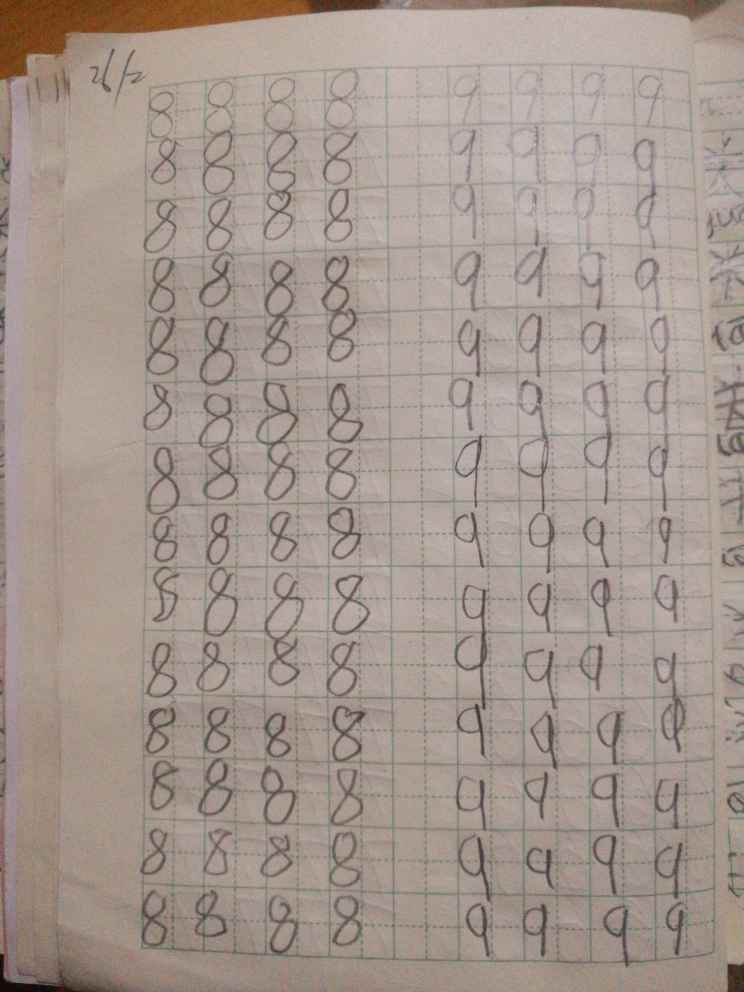 26/2
8 8 8 8 9 9 9 9
8 8 8 8 9 9 9 9
8 8 8 8 9 9 9 9
8 8 8 8 9 9 9 9
8 8 8 8 9 9 9 9
8 8 8 8 9 9 9 9
8 8 8 8 9 9 9 9
8 8 8 8 9 9 9 9
8 8 8 8 9 9 9 9
8 8 8 8 9 9 9 9
8 8 8 8 9 9 9 9
8 8 8 8 9 9 9 9
8 8 8 8 9 9 9 9
8 8 8 8 9 9 9 9